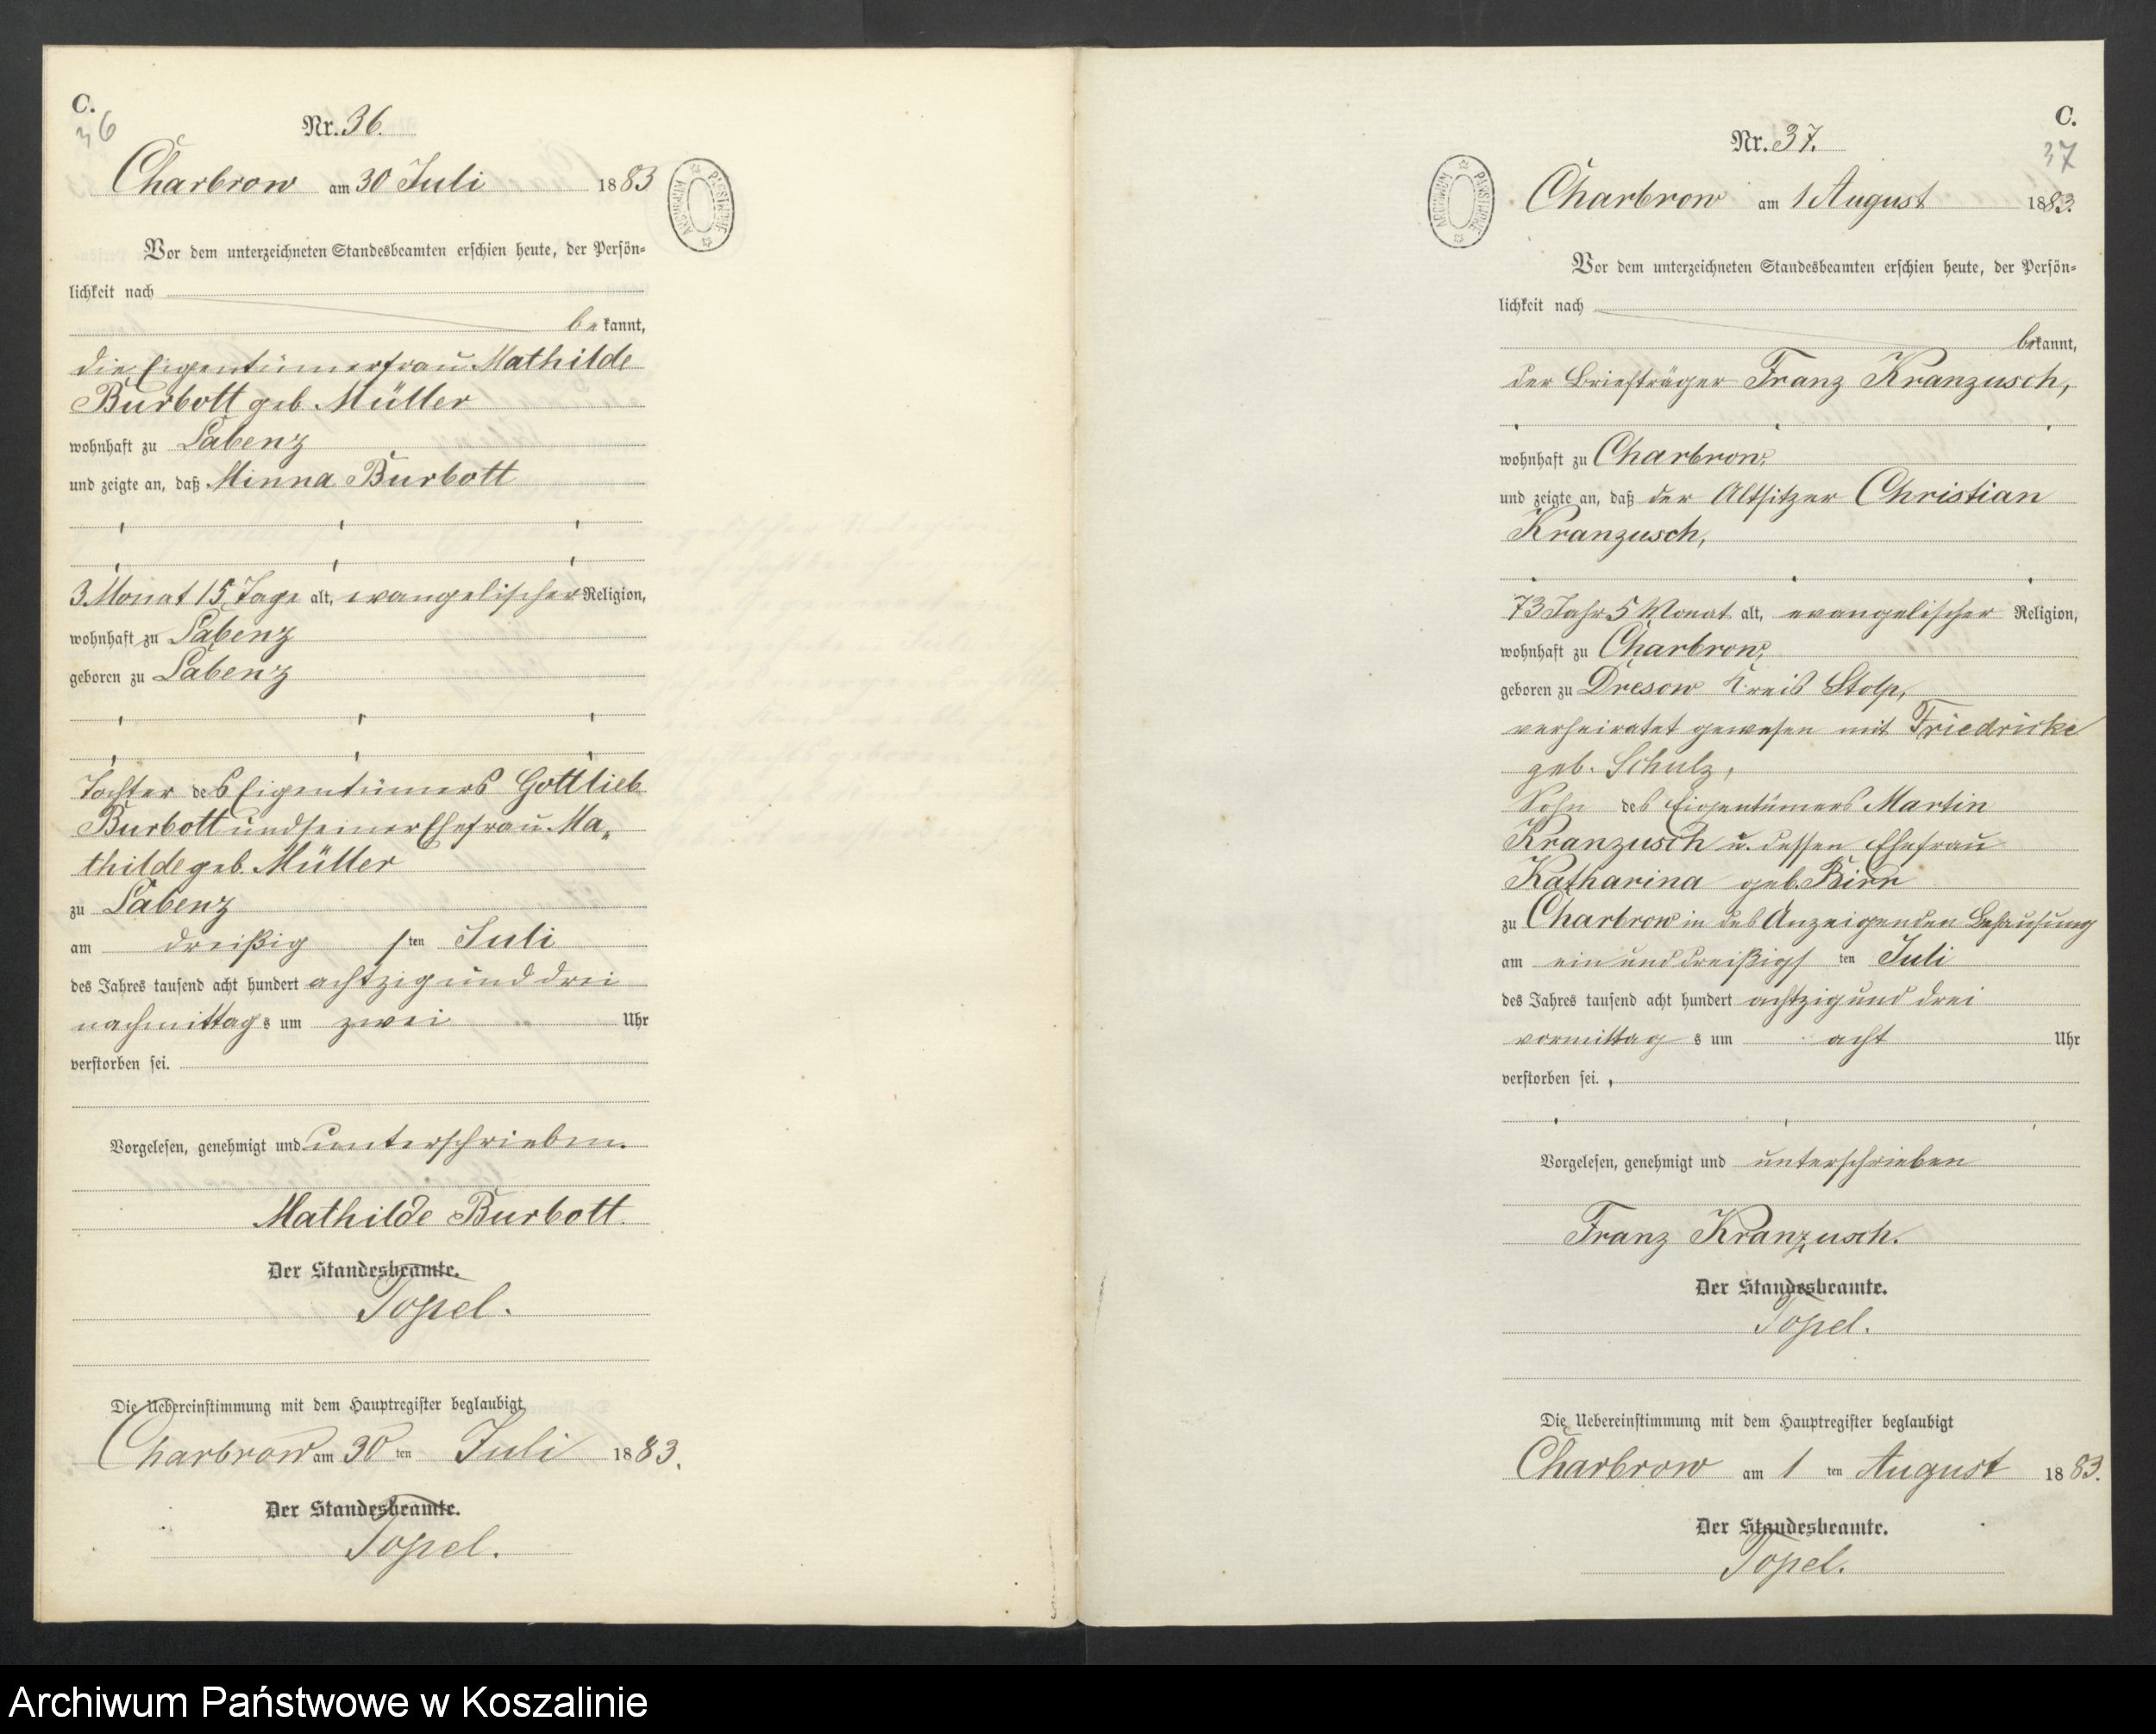 C.
36
Nr. 36.
Charbrow am 30 Juli 1883
ARCHIWUM PAŃSTWOWE
Vor dem unterzeichneten Standesbeamten erschien heute, der Persön-
lichkeit nach
bekannt,
die Eigentümerfrau Mathilde
Burbott geb. Müller
wohnhaft zu Labenz
und zeigte an, daß Minna Burbott
3 Monat 15 Tage alt, evangelischer Religion,
wohnhaft zu Labenz
geboren zu Labenz
Tochter des Eigentümers Gottlieb
Burbott und seiner Ehefrau Ma-
thilde geb. Müller
zu Labenz
am dreißigsten Juli
des Jahres tausend acht hundert achtzig und drei
nachmittags um zwei Uhr
verstorben sei.
Vorgelesen, genehmigt und unterschrieben.
Mathilde Burbott.
Der Standesbeamte.
Topel.
Die Uebereinstimmung mit dem Hauptregister beglaubigt
Charbrow am 30 ten Juli 1883.
Der Standesbeamte.
Topel.
C.
37
Nr. 37.
Charbrow am 1 August 1883.
ARCHIWUM PAŃSTWOWE
Vor dem unterzeichneten Standesbeamten erschien heute, der Persön-
lichkeit nach
bekannt,
der Briefträger Franz Kranzusch,
wohnhaft zu Charbrow,
und zeigte an, daß der Altsitzer Christian
Kranzusch,
73 Jahr 5 Monat alt, evangelischer Religion,
wohnhaft zu Charbrow,
geboren zu Dresow Kreis Stolp,
verheiratet gewesen mit Friedricke
geb. Schulz,
Sohn des Eigentümers Martin
Kranzusch u. dessen Ehefrau
Katharina geb. Birr
zu Charbrow in des Anzeigenden Behausung
am ein und dreißigsten Juli
des Jahres tausend acht hundert achtzig und drei
vormittags um acht Uhr
verstorben sei.
Vorgelesen, genehmigt und unterschrieben
Franz Kranzusch.
Der Standesbeamte.
Topel.
Die Uebereinstimmung mit dem Hauptregister beglaubigt
Charbrow am 1 ten August 1883.
Der Standesbeamte.
Topel.
Archiwum Państwowe w Koszalinie